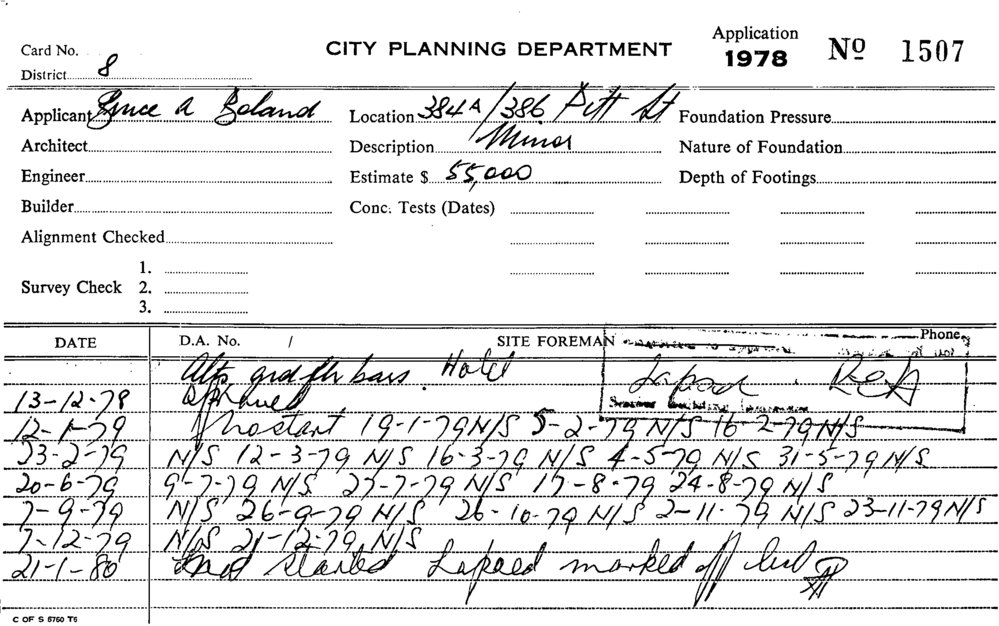 Card No.
CITY PLANNING DEPARTMENT
Application
1978 No 1507
District 8
Applicant Bruce A Boland
Location 384A/386 Pitt St
Foundation Pressure
Architect
Description Minor
Nature of Foundation
Engineer
Estimate $ 55,000
Depth of Footings
Builder
Conc. Tests (Dates)
Alignment Checked
Survey Check
1.
2.
3.
DATE D.A. No. / SITE FOREMAN Phone
Alts grd flr bars. Hotel
Lapsed
Senior Building
13-12-78 approved
12-1-79 No start 19-1-79 N/S 5-2-79 N/S 16-2-79 N/S
23-2-79 N/S 12-3-79 N/S 16-3-79 N/S 4-5-79 N/S 31-5-79 N/S
20-6-79 9-7-79 N/S 27-7-79 N/S 17-8-79 24-8-79 N/S
7-9-79 N/S 26-9-79 N/S 26-10-79 N/S 2-11-79 N/S 23-11-79 N/S
7-12-79 N/S 21-12-79 N/S
21-1-80 not started Lapsed marked off
C OF S 6760 T6